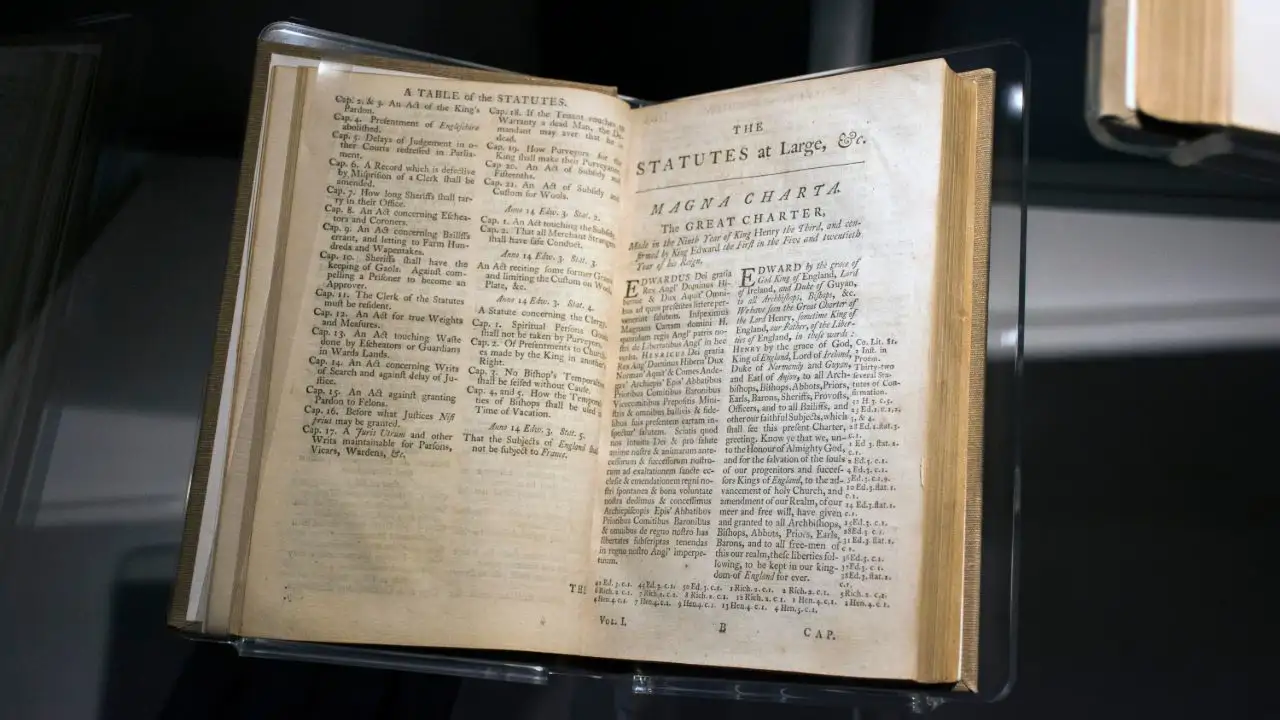 A TABLE of the STATUTES.
Cap. 2. & 3. An Act of the King's
Pardon.
Cap. 4. Presentment of Englischire
abolished.
Cap. 5. Delays of Judgement in o-
ther Courts redressed in Parlia-
ment.
Cap. 6. A Record which is defective
by Misprision of a Clerk shall be
amended.
Cap. 7. How long Sheriffs shall tar-
ry in their Office.
Cap. 8. An Act concerning Eschea-
tors and Coroners.
Cap. 9. An Act concerning Bailiffs
errant, and letting to Farm Hun-
dreds and Wapentakes.
Cap. 10. Sheriffs shall have the
keeping of Gaols. Against com-
pelling a Prisoner to become an
Approver.
Cap. 11. The Clerk of the Statutes
must be resident.
Cap. 12. An Act for true Weights
and Measures.
Cap. 13. An Act touching Waste
done by Escheators or Guardians
in Wards Lands.
Cap. 14. An Act concerning Writs
of Search and against delay of Ju-
stice.
Cap. 15. An Act against granting
Pardon to Felons.
Cap. 16. Before what Justices Nisi
prius may be granted.
Cap. 17. A Juris Utrum and other
Writs maintainable for Parsons,
Vicars, Wardens, &c.
Cap. 18. If the Tenant voucheth to
Warranty a dead Man, the De-
mandant may aver that he is
dead.
Cap. 19. How Purveyors for the
King shall make their Purveyance.
Cap. 20. An Act of Subsidy and
Fifteenths.
Cap. 21. An Act of Subsidy and
Custom for Wools.
Anno 14 Edw. 3. Stat. 2.
Cap. 1. An Act touching the Subsidy
Cap. 2. That all Merchant Strangers
shall have safe Conduct.
Anno 14 Edw. 3. Stat. 3.
An Act reciting some former Grants
and limiting the Custom on Wool,
Plate, &c.
Anno 14 Edw. 3. Stat. 4.
A Statute concerning the Clergy.
Cap. 1. Spiritual Persons Goods
shall not be taken by Purveyors.
Cap. 2. Of Presentments to Church-
es made by the King in another
Right.
Cap. 3. No Bishop's Temporalties
shall be seised without Cause.
Cap. 4, and 5. How the Tempora
ties of Bishops shall be used in
Time of Vacation.
Anno 14 Edw. 3. Stat. 5.
That the Subjects of England shall
not be subject to France.
THE
THE
STATUTES at Large, &c.
MAGNA CHARTA.
The GREAT CHARTER,
Made in the Ninth Year of King Henry the Third, and con-
firmed by King Edward the First in the Five and twentieth
Year of his Reign.
EDWARDUS Dei gratia
Rex Angl' Dominus Hi-
bernie & Dux Aquit' Omni-
bus ad quos presentes litere per-
venerint salutem. Inspeximus
Magnam Cartam domini H.
quondam regis Angl' patris no-
stri de Libertatibus Angl' in hec
verba. HENRICUS Dei gratia
Rex Angl' Dominus Hibern' Dux
Norman' Aquit' & Comes Ande-
gav' Archiepis' Epis' Abbatibus
Prioribus Comitibus Baronibus
Vicecomitibus Prepositis Mini-
stris & omnibus ballivis & fide-
libus suis presentem cartam in-
spectur' salutem. Sciatis quod
nos intuitu Dei & pro salute
anime nostre & animarum ante-
cessorum & successorum nostro-
rum ad exaltationem sancte ec-
clesie & emendationem regni no-
stri spontanea & bona voluntate
nostra dedimus & concessimus
Archiepiscopis Epis' Abbatibus
Prioribus Comitibus Baronibus
& omnibus de regno nostro has
libertates subscriptas tenendas
in regno nostro Angl' imperpe-
tuum.
EDWARD by the grace of
God King of England, Lord
of Ireland, and Duke of Guyan,
to all Archbishops, Bishops, &c.
We have seen the Great Charter of
the Lord Henry, sometime King of
England, our Father, of the Liber-
ties of England, in these words:
HENRY by the grace of God,
King of England, Lord of Ireland,
Duke of Normandy and Guyan,
and Earl of Anjou, to all Arch-
bishops, Bishops, Abbots, Priors,
Earls, Barons, Sheriffs, Provosts,
Officers, and to all Bailiffs, and
other our faithful Subjects, which
shall see this present Charter,
greeting. Know ye that we, un-
to the Honour of Almighty God,
and for the salvation of the souls
of our progenitors and succes-
sors Kings of England, to the ad-
vancement of holy Church, and
amendment of our Realm, of our
meer and free will, have given
and granted to all Archbishops,
Bishops, Abbots, Priors, Earls,
Barons, and to all free-men of
this our realm, these liberties fol-
lowing, to be kept in our king-
dom of England for ever.
Co. Lit. 81.
2 Inst. in
Proem.
Thirty-two
several Sta-
tutes of Con-
firmation.
VOL. I.
B
CAP.